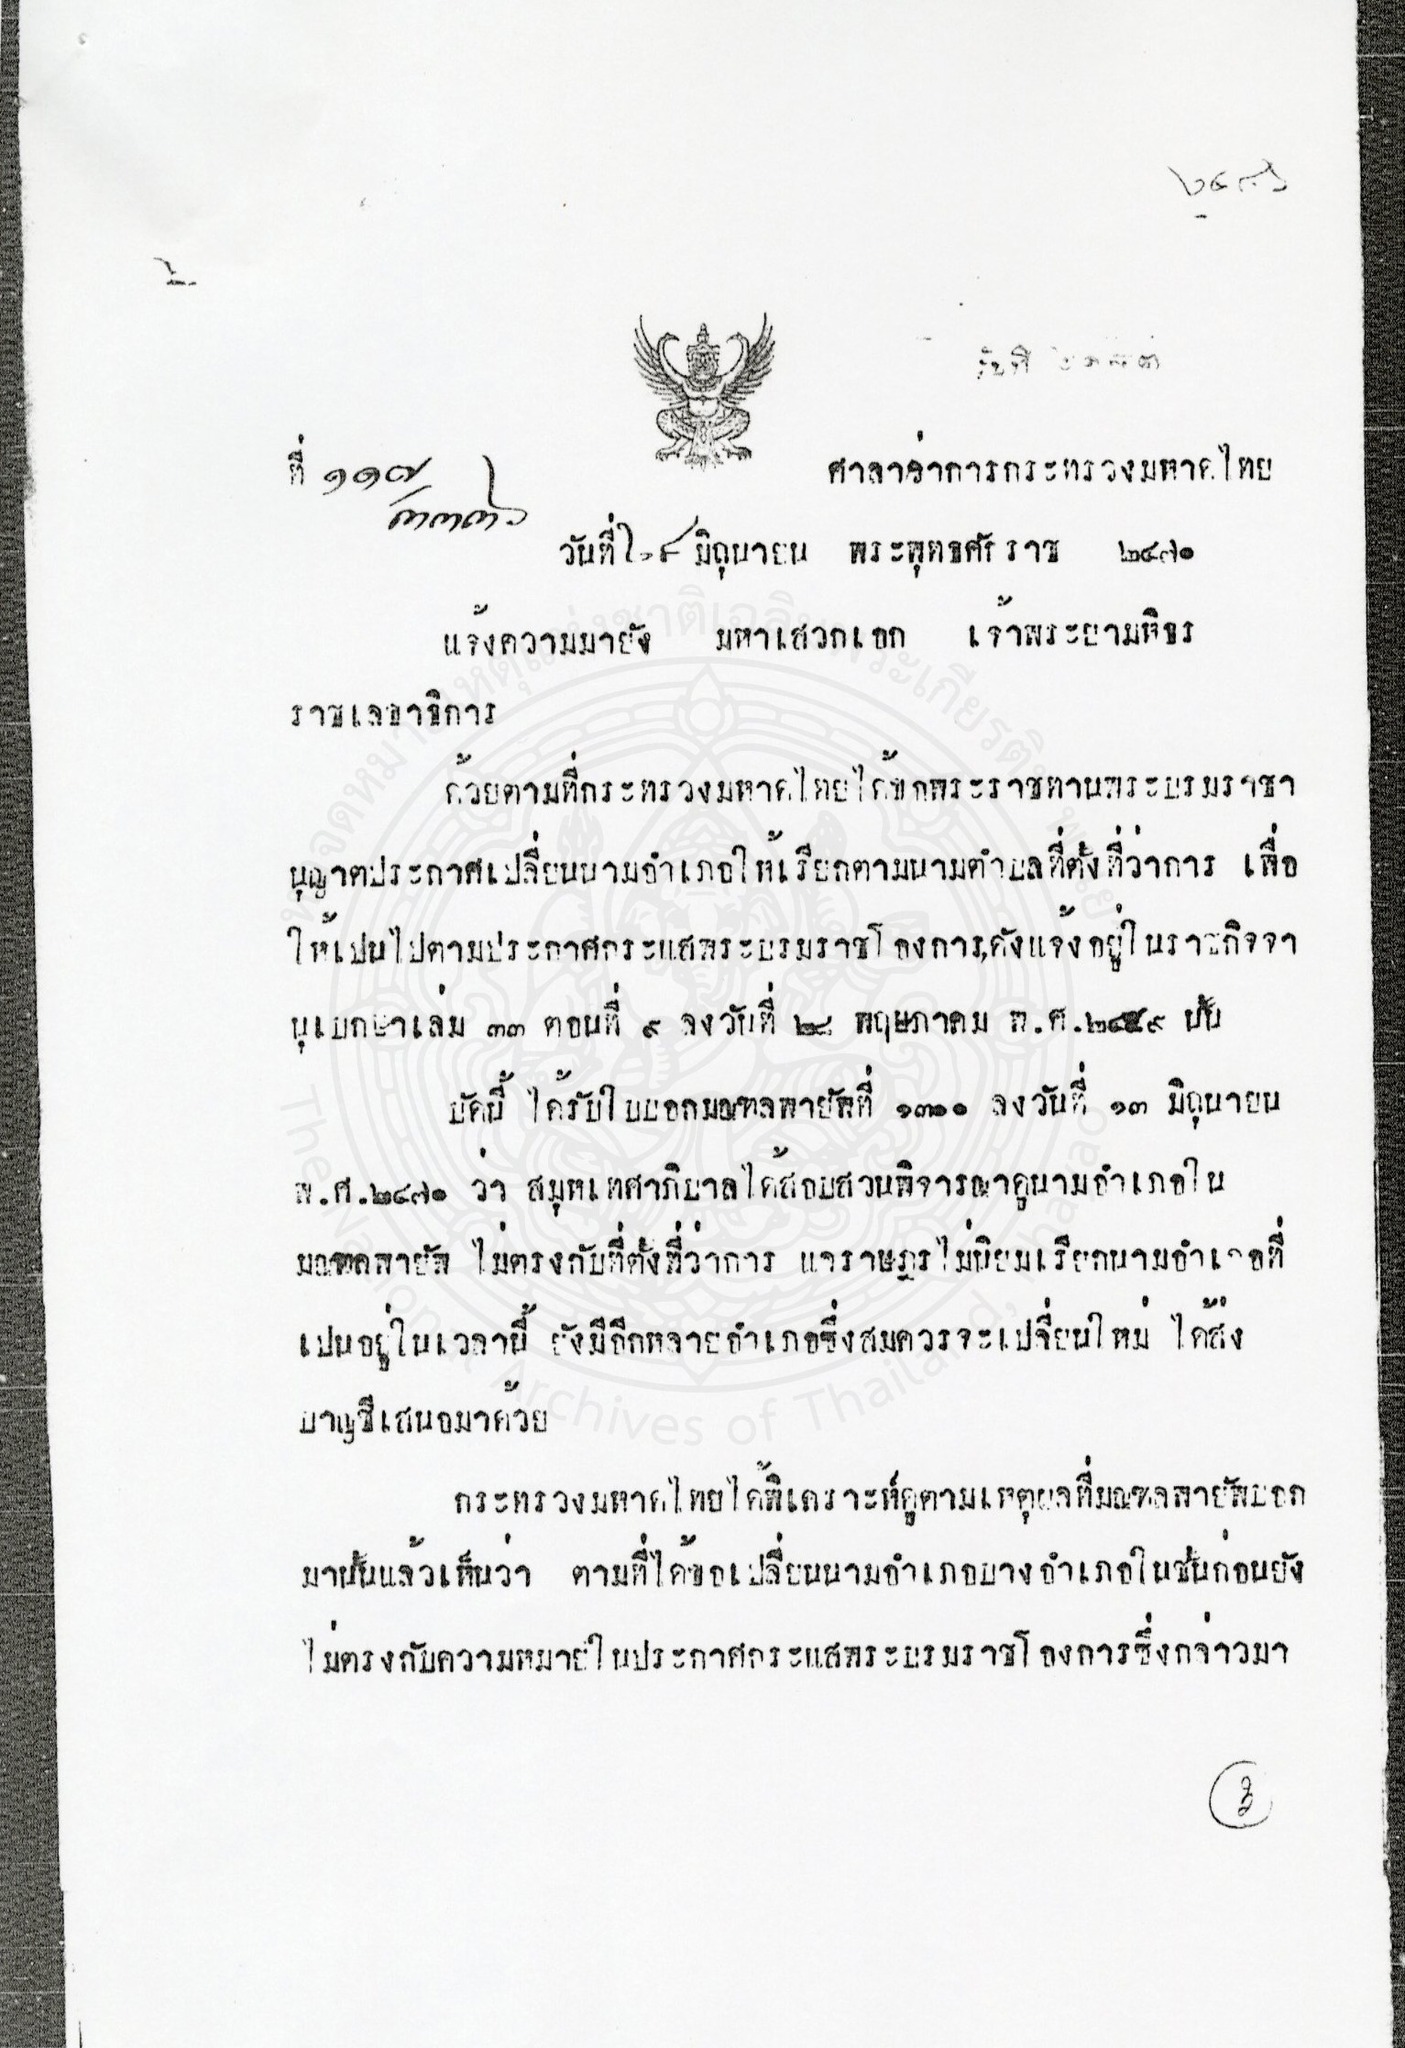 ที่ ๑๑๗/๓๓๓๖
ศาลาว่าการกระทรวงมหาดไทย
วันที่ ๒๘ มิถุนายน พระพุทธศักราช ๒๔๗๐
แจ้งความมายัง มหาเสวกเอก เจ้าพระยามหิธร
ราชเลขาธิการ
ด้วยตามที่กระทรวงมหาดไทยได้ขอพระราชทานพระบรมราชา
นุญาตประกาศเปลี่ยนนามอำเภอให้เรียกตามนามตำบลที่ตั้งที่ว่าการ เพื่อ
ให้เปนไปตามประกาศกระแสพระบรมราชโองการ,ดังแจ้งอยู่ในราชกิจจา
นุเบกษาเล่ม ๓๓ ตอนที่ ๙ ลงวันที่ ๒๘ พฤษภาคม พ.ศ.๒๔๕๙ นั้น
บัดนี้ ได้รับใบบอกมณฑลพายัพที่ ๑๓๑๐ ลงวันที่ ๑๓ มิถุนายน
พ.ศ.๒๔๗๐ ว่า สมุหเทศาภิบาลได้สอบสวนพิจารณาดูนามอำเภอใน
มณฑลพายัพ ไม่ตรงกับที่ตั้งที่ว่าการ แลราษฎรไม่นิยมเรียกนามอำเภอที่
เปนอยู่ในเวลานี้ ยังมีอีกหลายอำเภอซึ่งสมควรจะเปลี่ยนใหม่ ได้ส่ง
บาญชีเสนอมาด้วย
กระทรวงมหาดไทยได้พิเคราะห์ดูตามเหตุผลที่มณฑลพายัพบอก
มานั้นแล้วเห็นว่า ตามที่ได้ขอเปลี่ยนนามอำเภอบางอำเภอในชั้นก่อนยัง
ไม่ตรงกับความหมายในประกาศกระแสพระบรมราชโองการซึ่งกล่าวมา
หอจดหมายเหตุแห่งชาติเฉลิมพระเกียรติฯ พะเยา
The National Archives of Thailand, Phayao